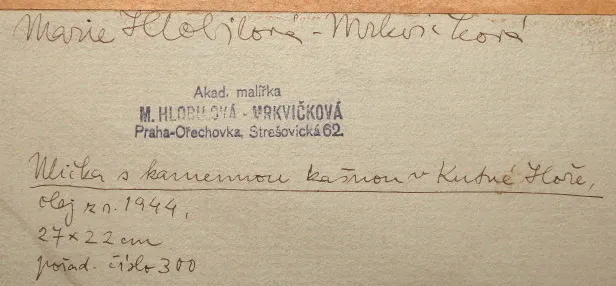 Marie Hlobilová-Mrkvičková
Akad. malířka
M. HLOBILOVÁ - MRKVIČKOVÁ
Praha-Ořechovka, Strešovická 62.
Ulička s kamennou kašnou v Kutné Hoře,
olej z r. 1944,
27×22 cm
pořad. číslo 300